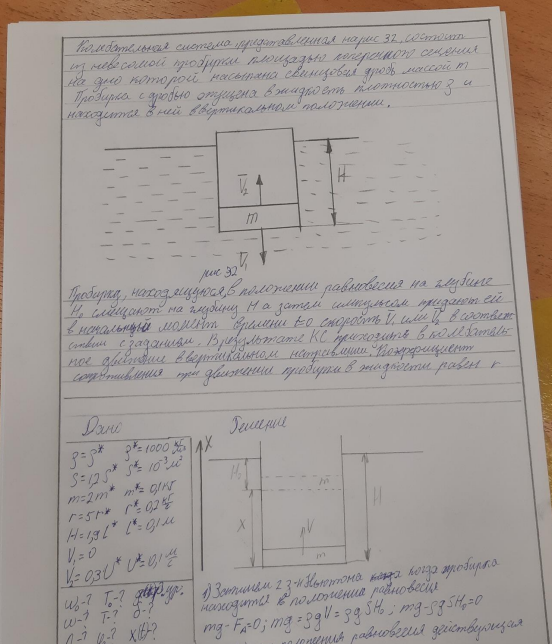 Колебательная система, представленная на рис 32, состоит
из невесомой пробирки площадью поперечного сечения
на дно которой насыпана свинцовая дробь массой m
Пробирка с дробью опущена в жидкость плотностью ρ и
находится в ней в вертикальном положении.
V̄₂
H
m
V̄₁
рис 32
Пробирка, находящуюся в положении равновесия на глубине
H₀ смещают на глубину H а затем импульсом придают ей
в начальный момент времени t=0 скорость V₁ или V₂ в соответс
ствии с заданием. В результате КС приходит в колебатель
ное движение в вертикальном направлении. Коэффициент
сопротивления при движении пробирки в жидкости равен r
Дано
ρ=ρ* ρ*=1000 кг/м³
S=1,2S* S*=10⁻³ м²
m=2m* m*=0,1кг
r=5r* r*=0,2 кг/с
H=1,9l* l*=0,1м
V₁=0
V₂=0,3U* U*=0,1 м/с
ω₀-? T₀-? ур.
ω-? T-? δ-?
X
Решение
m
H
X
V
m
1) Запишем 2 з-н Ньютона когда пробирка
находится в положении равновесия
mg-F_A=0; mg=ρgV=ρgSH₀; mg-ρgSH₀=0
положения равновесия действующая